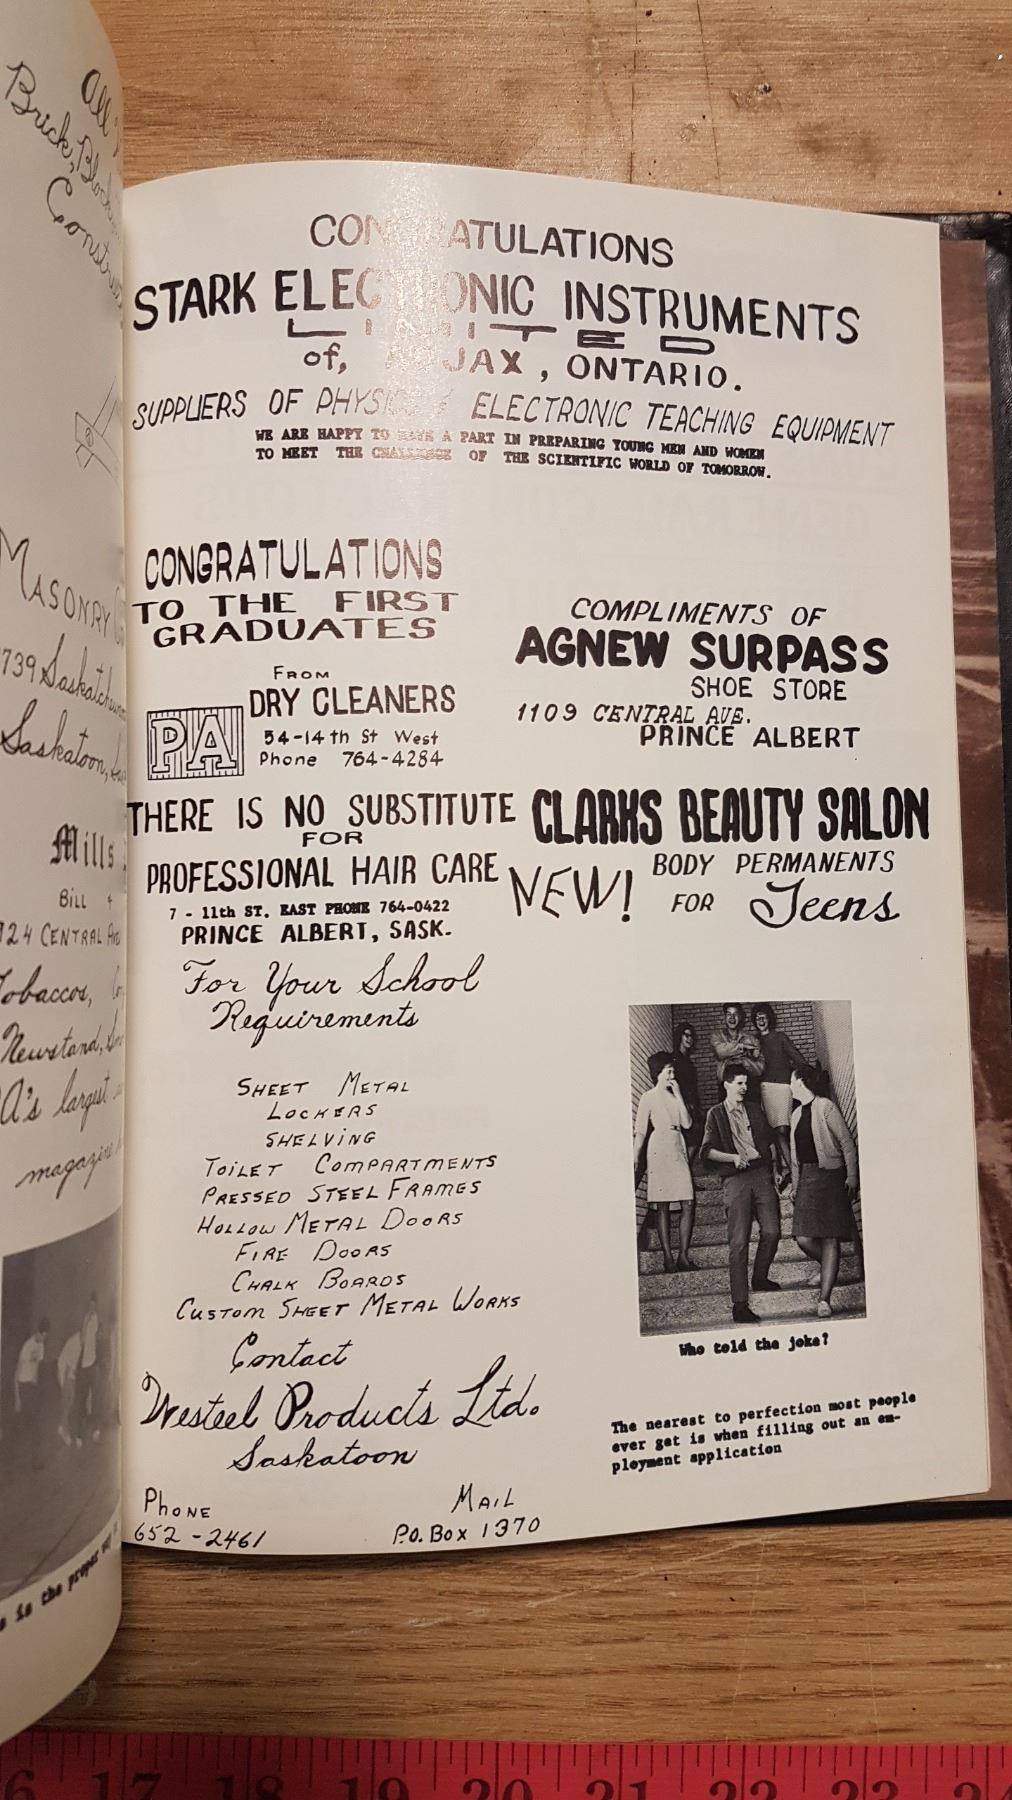 All
Brick, Block
Construc
MASONRY
739 Saskatchewan
Saskatoon,
Mills
BILL +
24 CENTRAL AVE
Tobaccos,
Newstand,
PA's largest
magazine
is the proper
CONGRATULATIONS
STARK ELECTRONIC INSTRUMENTS
LIMITED
of, AJAX, ONTARIO.
SUPPLIERS OF PHYSICS / ELECTRONIC TEACHING EQUIPMENT
WE ARE HAPPY TO HAVE A PART IN PREPARING YOUNG MEN AND WOMEN
TO MEET THE CHALLENGE OF THE SCIENTIFIC WORLD OF TOMORROW.
CONGRATULATIONS
TO THE FIRST
GRADUATES
FROM
PA DRY CLEANERS
54-14th St West
Phone 764-4284
COMPLIMENTS OF
AGNEW SURPASS
SHOE STORE
1109 CENTRAL AVE.
PRINCE ALBERT
THERE IS NO SUBSTITUTE
FOR
PROFESSIONAL HAIR CARE
7 - 11th ST. EAST PHONE 764-0422
PRINCE ALBERT, SASK.
CLARKS BEAUTY SALON
NEW! BODY PERMANENTS
FOR Teens
For Your School
Requirements
SHEET METAL
LOCKERS
SHELVING
TOILET COMPARTMENTS
PRESSED STEEL FRAMES
HOLLOW METAL DOORS
FIRE DOORS
CHALK BOARDS
CUSTOM SHEET METAL WORKS
Contact
Westeel Products Ltd.
Saskatoon
PHONE
652-2461
MAIL
P.O. BOX 1370
Who told the joke?
The nearest to perfection most people
ever get is when filling out an em-
ployment application
16 17 18 19 20 21 22 23 24